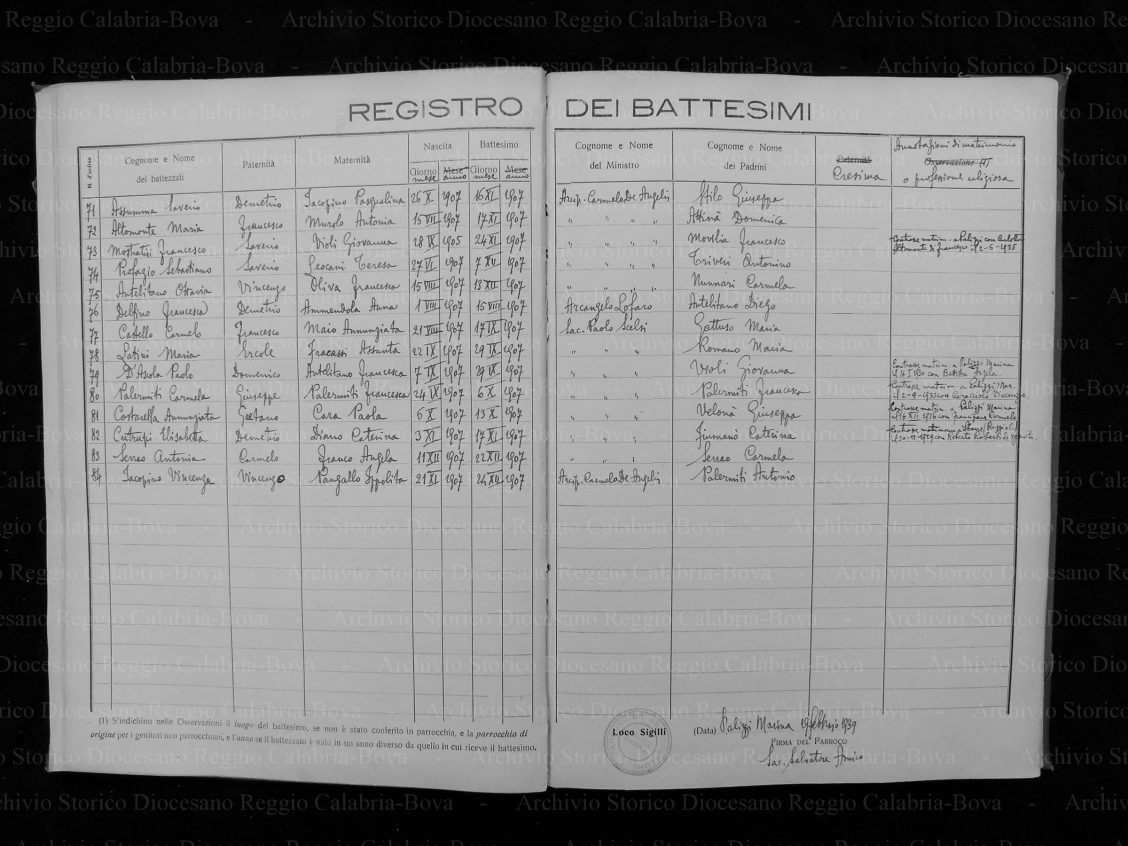 REGISTRO DEI BATTESIMI
N. d'ordine
Cognome e Nome dei battezzati
Paternità
Maternità
Nascita
Giorno mese
Mese anno
Battesimo
Giorno mese
Mese anno
Cognome e Nome del Ministro
Cognome e Nome dei Padrini
Paternità Cresima
Annotazioni di matrimonio
Osservazione (1)
o professione religiosa
71 Assumma Saverio Demetrio Iacopino Pasqualina 26 X 1907 16 XI 1907 Arcip. Carmelo De Angelis Stilo Giuseppa
72 Altomonte Maria Francesco Murolo Antonia 15 VII 1907 17 XI 1907 " " " " Attinà Domenica
73 Francesco Saverio Violi Giovanna 28 IX 1905 24 XI 1907 " " " " Movilia Francesco
74 Profazio Sebastiano Saverio Teresa 27 VI 1907 7 1907 " " " " Triveri Antonino
75 Antelitano Ottavia Vincenzo Oliva Francesca 15 VIII 1907 13 XII 1907 " " " " Nunnari Carmela
76 Delfino Francesca Demetrio Ammendola Anna 1 VIII 1907 15 VIII 1907 Arcangelo Lofaro Antelitano Diego
77 Catello Carmelo Francesco Maio Annunziata 21 VIII 1907 17 IX 1907 Sac. Paolo Scelsi Gattuso Maria
78 Latini Maria Ercole Fracassi Assunta 22 IX 1907 29 IX 1907 " " " Romano Maria
79 D'Ascola Paolo Domenico Antelitano Francesca 7 IX 1907 29 IX 1907 " " " Violi Giovanna
80 Palermiti Carmela Giuseppe Palermiti Francesca 24 IX 1907 6 X 1907 " " " Palermiti Francesca
81 Cottarella Annunziata Gaetano Cara Paola 6 X 1907 13 X 1907 " " " Velonà Giuseppa
82 Cutrupi Elisabetta Demetrio Diano Caterina 3 XI 1907 17 XI 1907 " " " Fiumanò Caterina
83 Serrao Antonia Carmelo Franco Angela 11 XII 1907 22 XII 1907 " " " Serrao Carmela
84 Iacopino Vincenza Vincenzo Pangallo Ippolita 21 XI 1907 24 XII 1907 Arcip. Carmelo De Angelis Palermiti Antonio
Contrasse matrim. a Palizzi con
Altomonte di Francesco il 2-6-1935
Contrasse matrim. a Palizzi Marina
1930 con Battista Angela
Contrasse matrim. a Palizzi Mar.
il 2-9-1933 con Caracciolo Vincenzo
Contrasse matrim. a Palizzi Marina
il 16 XII 1926 con Carmelo
Contrasse matrimonio a
(1) S'indichino nelle Osservazioni il luogo del battesimo, se non è stato conferito in parrocchia, e la parrocchia di
origine per i genitori non parrocchiani, e l'anno se il battezzato è nato in un anno diverso da quello in cui riceve il battesimo.
Loco Sigilli
(Data) Palizzi Marina 19 febbraio 1939
FIRMA DEL PARROCO
Sac. Salvatore
Archivio Storico Diocesano Reggio Calabria-Bova